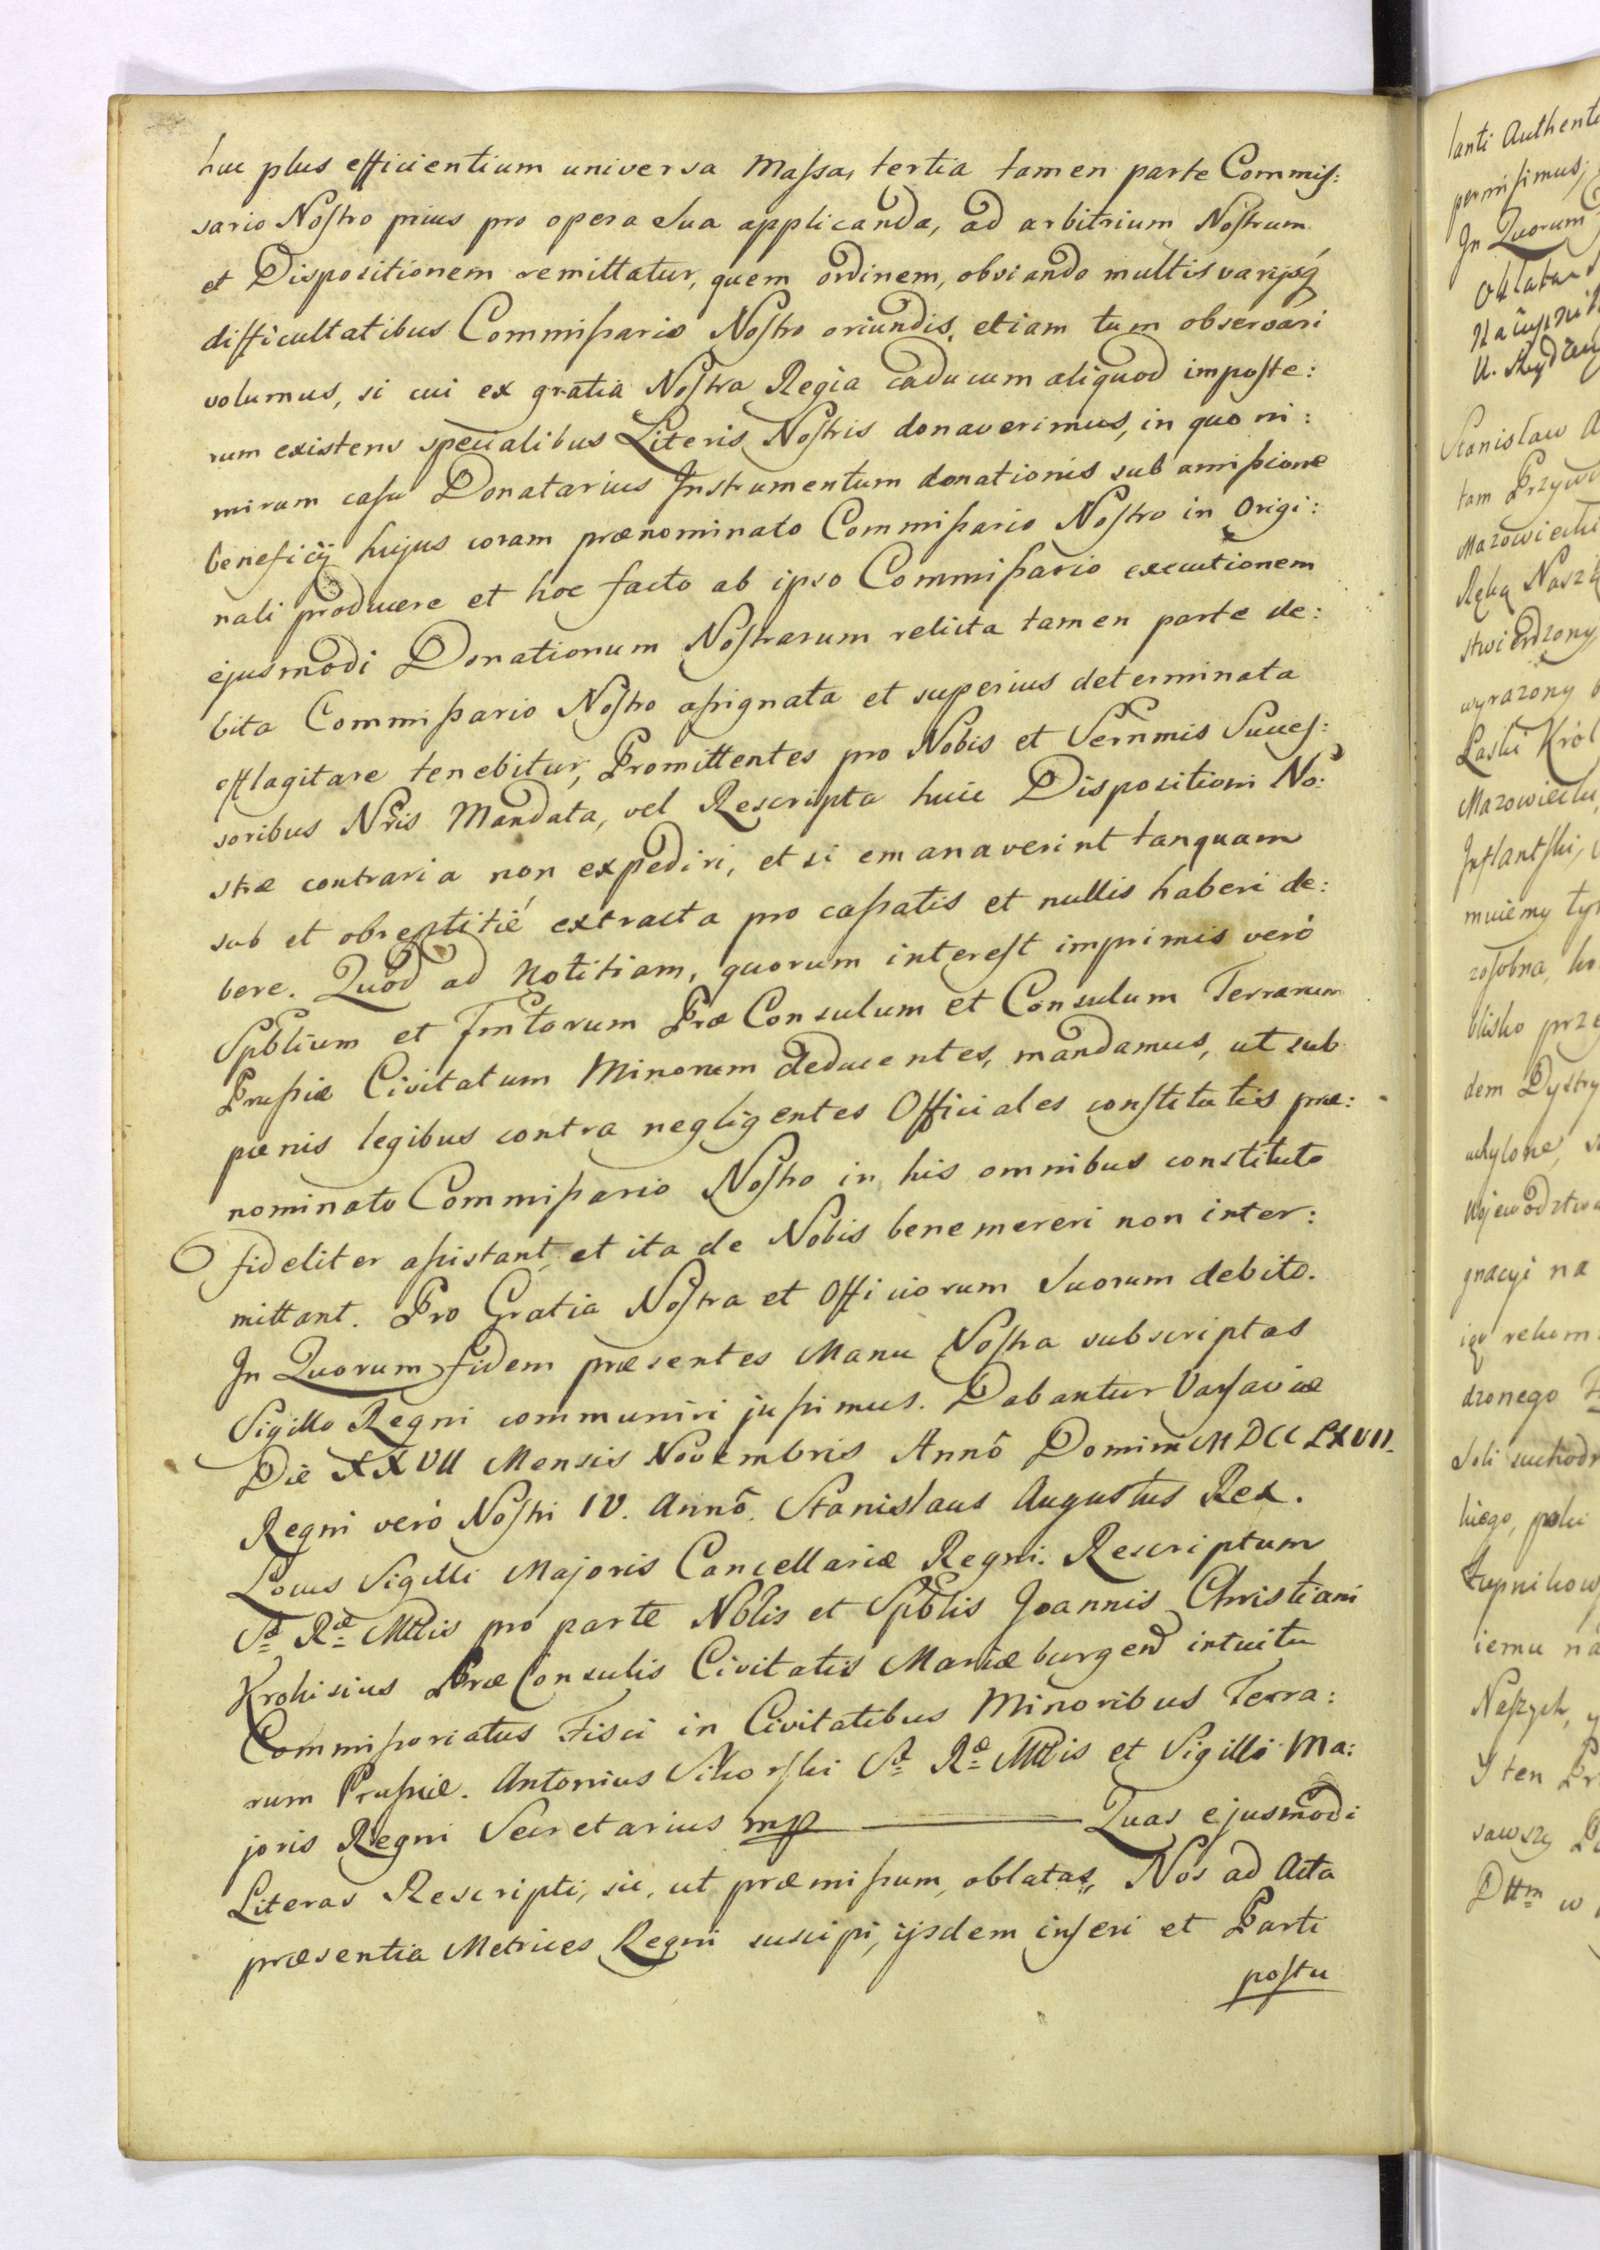 huc plus efficientium universa Massa, tertia tamen parte Commis:
sario Nostro prius pro opera sua applicanda, ad arbitrium Nostrum
et Dispositionem remittatur, quem ordinem, obviando multis varijsq́
difficultatibus Commissario Nostro oriundis, etiam tum observari
volumus, si cui ex gratia Nostra Regia caducum aliquod imposte:
rum existens specialibus Literis Nostris donaverimus, in quo ni:
mirum casu Donatarius Instrumentum donationis sub amissione
beneficij hujus coram prænominato Commissario Nostro in Origi:
nali producere et hoc facto ab ipso Commissario executionem
ejusmodi Donationum Nostrarum relicta tamen parte de:
bita Commissario Nostro assignata et superius determinata
efflagitare tenebitur, Promittentes pro Nobis et Sernmis Succes:
soribus Nris Mandata, vel Rescripta huic Dispositioni No:
stræ contraria non expediri, et si emanaverint tanquam
sub et obreptitié extracta pro cassatis et nullis haberi de:
bere. Quod ad Notitiam, quorum interest imprimis veró
Spblium et Fmtorum Præ Consulum et Consulum Terrarum
Prussiæ Civitatum Minorum deducentes, mandamus, ut sub
pænis legibus contra negligentes Officiales constitutis præ:
nominato Commissario Nostro in his omnibus constituto
fideliter assistant, et ita de Nobis bene mereri non inter:
mittant. Pro Gratia Nostra et Officiorum Suorum debito.
In Quorum fidem præsentes Manu Nostra subscriptas
Sigillo Regni communiri jussimus. Dabantur Varsaviæ
Die XXVII Mensis Novembris Annô Domini MDCCLXVII.
Regni veró Nostri IV. Annô. Stanislaus Augustus Rex.
Locus Sigilli Majoris Cancellariæ Regni. Rescriptum
Sæ Ræ Mttis pro parte Nblis et Spblis Joannis Christiani
Krohisius Præ Consulis Civitatis Mariæburgen intuitu
Commissoriatus Fisci in Civitatibus Minoribus Terra:
rum Prussiæ. Antonius Sikorski Sæ Ræ Mttis et Sigilli Ma:
joris Regni Secretarius mp Quas ejusmodi
Literas Rescripti, sic, ut præmissum, oblatas, Nos ad Acta
præsentia Metrices Regni suscipi, ijsdem inseri et Parti
postu
lanti Authent
permisimus,
In Quorum
Oblata
Stanisław A
tam Przywi
Mazowiecki
Ręką Naszą
stwierdzony
wyrażony
Laski Król
Mazowiecki,
Inflantski,
blisko prze
dem Dystry
uchylone,
Wojewodztwa
gnacyi na
dzonego
iemu na
Naszych, y
Y ten Pr
w